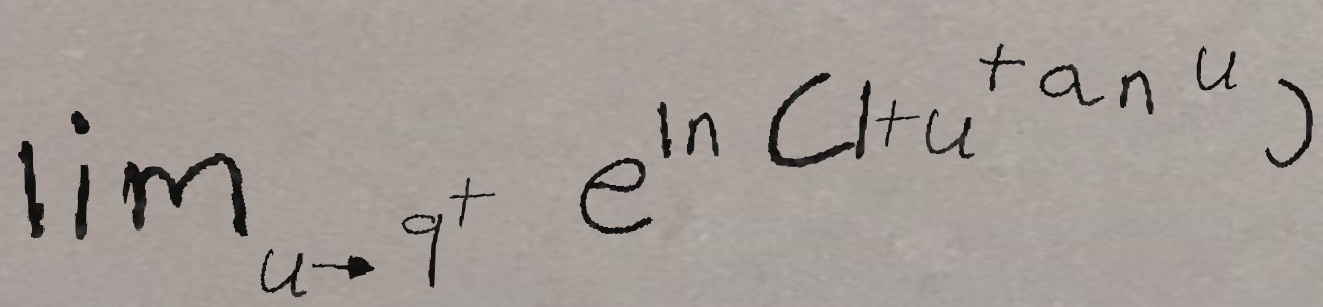 lim_{u \to 9^+} e^{ln (1+u^{tan u})}